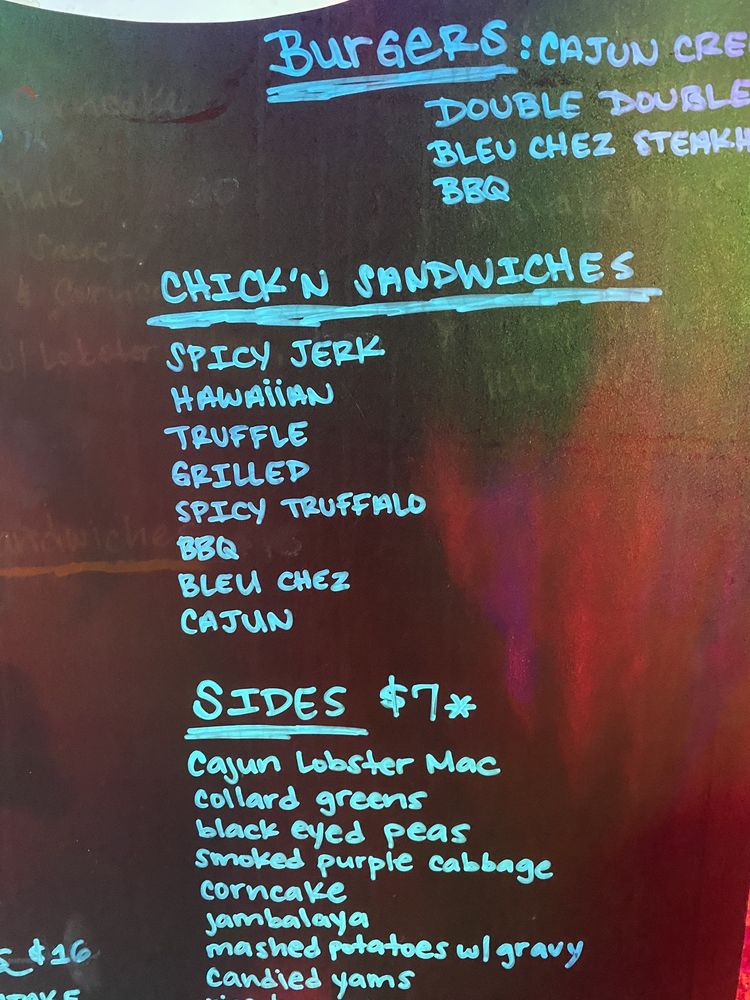 BURGERS: CAJUN CRE
DOUBLE DOUBLE
BLEU CHEZ STEAKH
BBQ
CHICK'N SANDWICHES
SPICY JERK
HAWAiiAN
TRUFFLE
GRILLED
SPICY TRUFFALO
BBQ
BLEU CHEZ
CAJUN
SIDES $7*
Cajun Lobster Mac
collard greens
black eyed peas
smoked purple cabbage
corncake
jambalaya
mashed potatoes w/ gravy
candied yams
$16